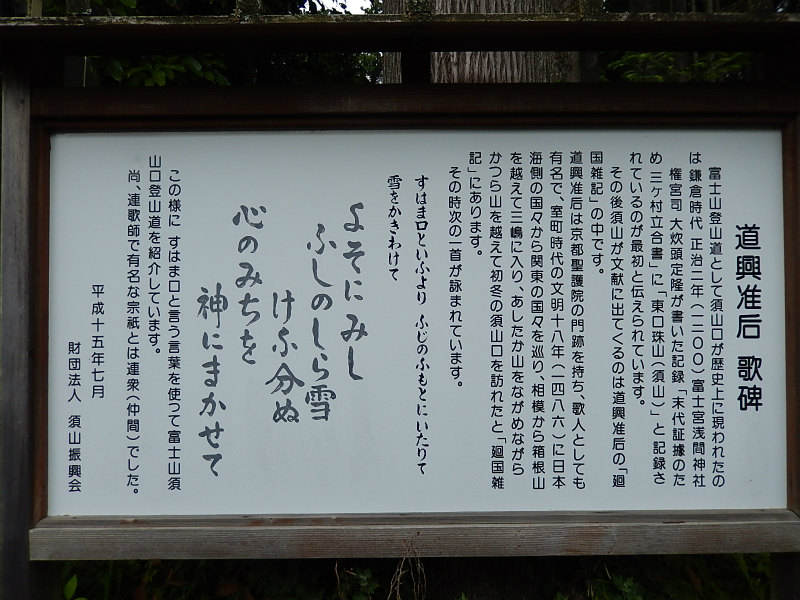 道興准后 歌碑
富士山登山道として須山口が歴史上に現われたの
は鎌倉時代 正治二年（一二〇〇）富士宮浅間神社
権宮司 大炊頭定隆が書いた記録「末代証據のた
め 三ヶ村立合書」に「東口珠山（須山）」と記録さ
れているのが最初と伝えられています。
その後須山が文献に出てくるのは道興准后の「廻
国雑記」の中です。
道興准后は京都聖護院の門跡を持ち、歌人としても
有名で、室町時代の文明十八年（一四八六）に日本
海側の国々から関東の国々を巡り、相模から箱根山
を越えて三嶋に入り、あしたか山をながめながら
かつら山を越えて初冬の須山口を訪れたと「廻国雑
記」にあります。
その時次の一首が詠まれています。
すはま口といふより ふじのふもとにいたりて
雪をかきわけて
よそにみし
ふしのしら雪
けふ分ぬ
心のみちを
神にまかせて
この様に すはま口と言う言葉を使って富士山須
山口登山道を紹介しています。
尚、連歌師で有名な宗祇とは連衆（仲間）でした。
平成十五年七月
財団法人 須山振興会